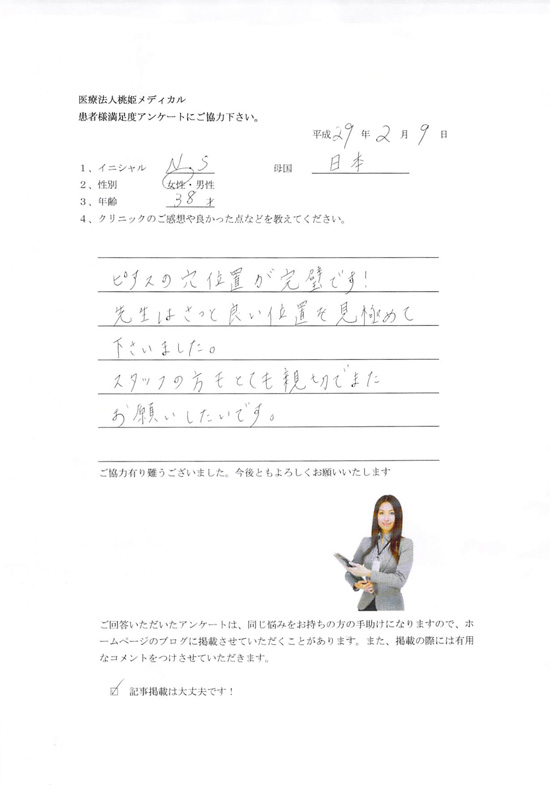 医療法人桃姫メディカル
患者様満足度アンケートにご協力下さい。
平成29年2月9日
1、イニシャル N.S 母国 日本
2、性別 女性・男性
3、年齢 38才
4、クリニックのご感想や良かった点などを教えてください。
ピアスの穴位置が完璧です!
先生はさっと良い位置を見極めて
下さいました。
スタッフの方もとても親切でまた
お願いしたいです。
ご協力有り難うございました。今後ともよろしくお願いいたします
ご回答いただいたアンケートは、同じ悩みをお持ちの方の手助けになりますので、ホ
ームページのブログに掲載させていただくことがあります。また、掲載の際には有用
なコメントをつけさせていただきます。
☑ 記事掲載は大丈夫です!